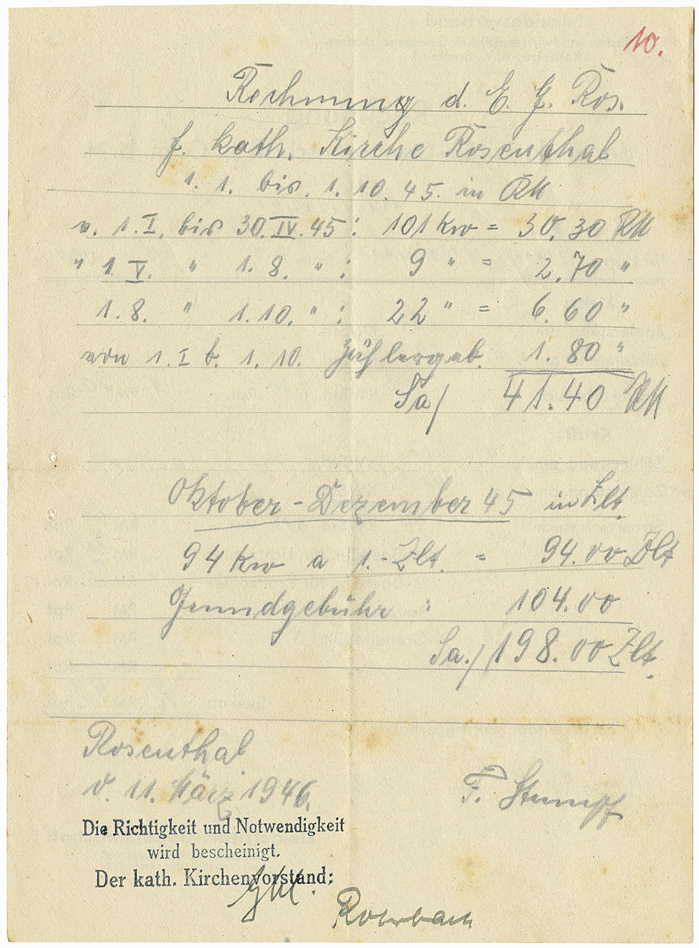 10.
Rechnung d. E. G. Ros.
f. kath. Kirche Rosenthal
1. 1. bis 1. 10. 45. in RM
v. 1. I. bis 30. IV. 45 : 101 kw = 30.30 RM
" 1. V. " 1. 8. " : 9 " = 2.70 "
1. 8. " 1. 10. " : 22 " = 6.60 "
von 1. I b. 1. 10. Zählergeb. 1.80 "
Sa/ 41.40 RM
Oktober - Dezember 45 in Zlt.
94 Kw a 1.- Zlt. = 94.00 Zlt
Grundgebühr : 104.00
Sa./ 198.00 Zlt.
Rosenthal
d. 11. März 1946.
F. Stumpf
Die Richtigkeit und Notwendigkeit
wird bescheinigt.
Der kath. Kirchenvorstand:
Rohrbach